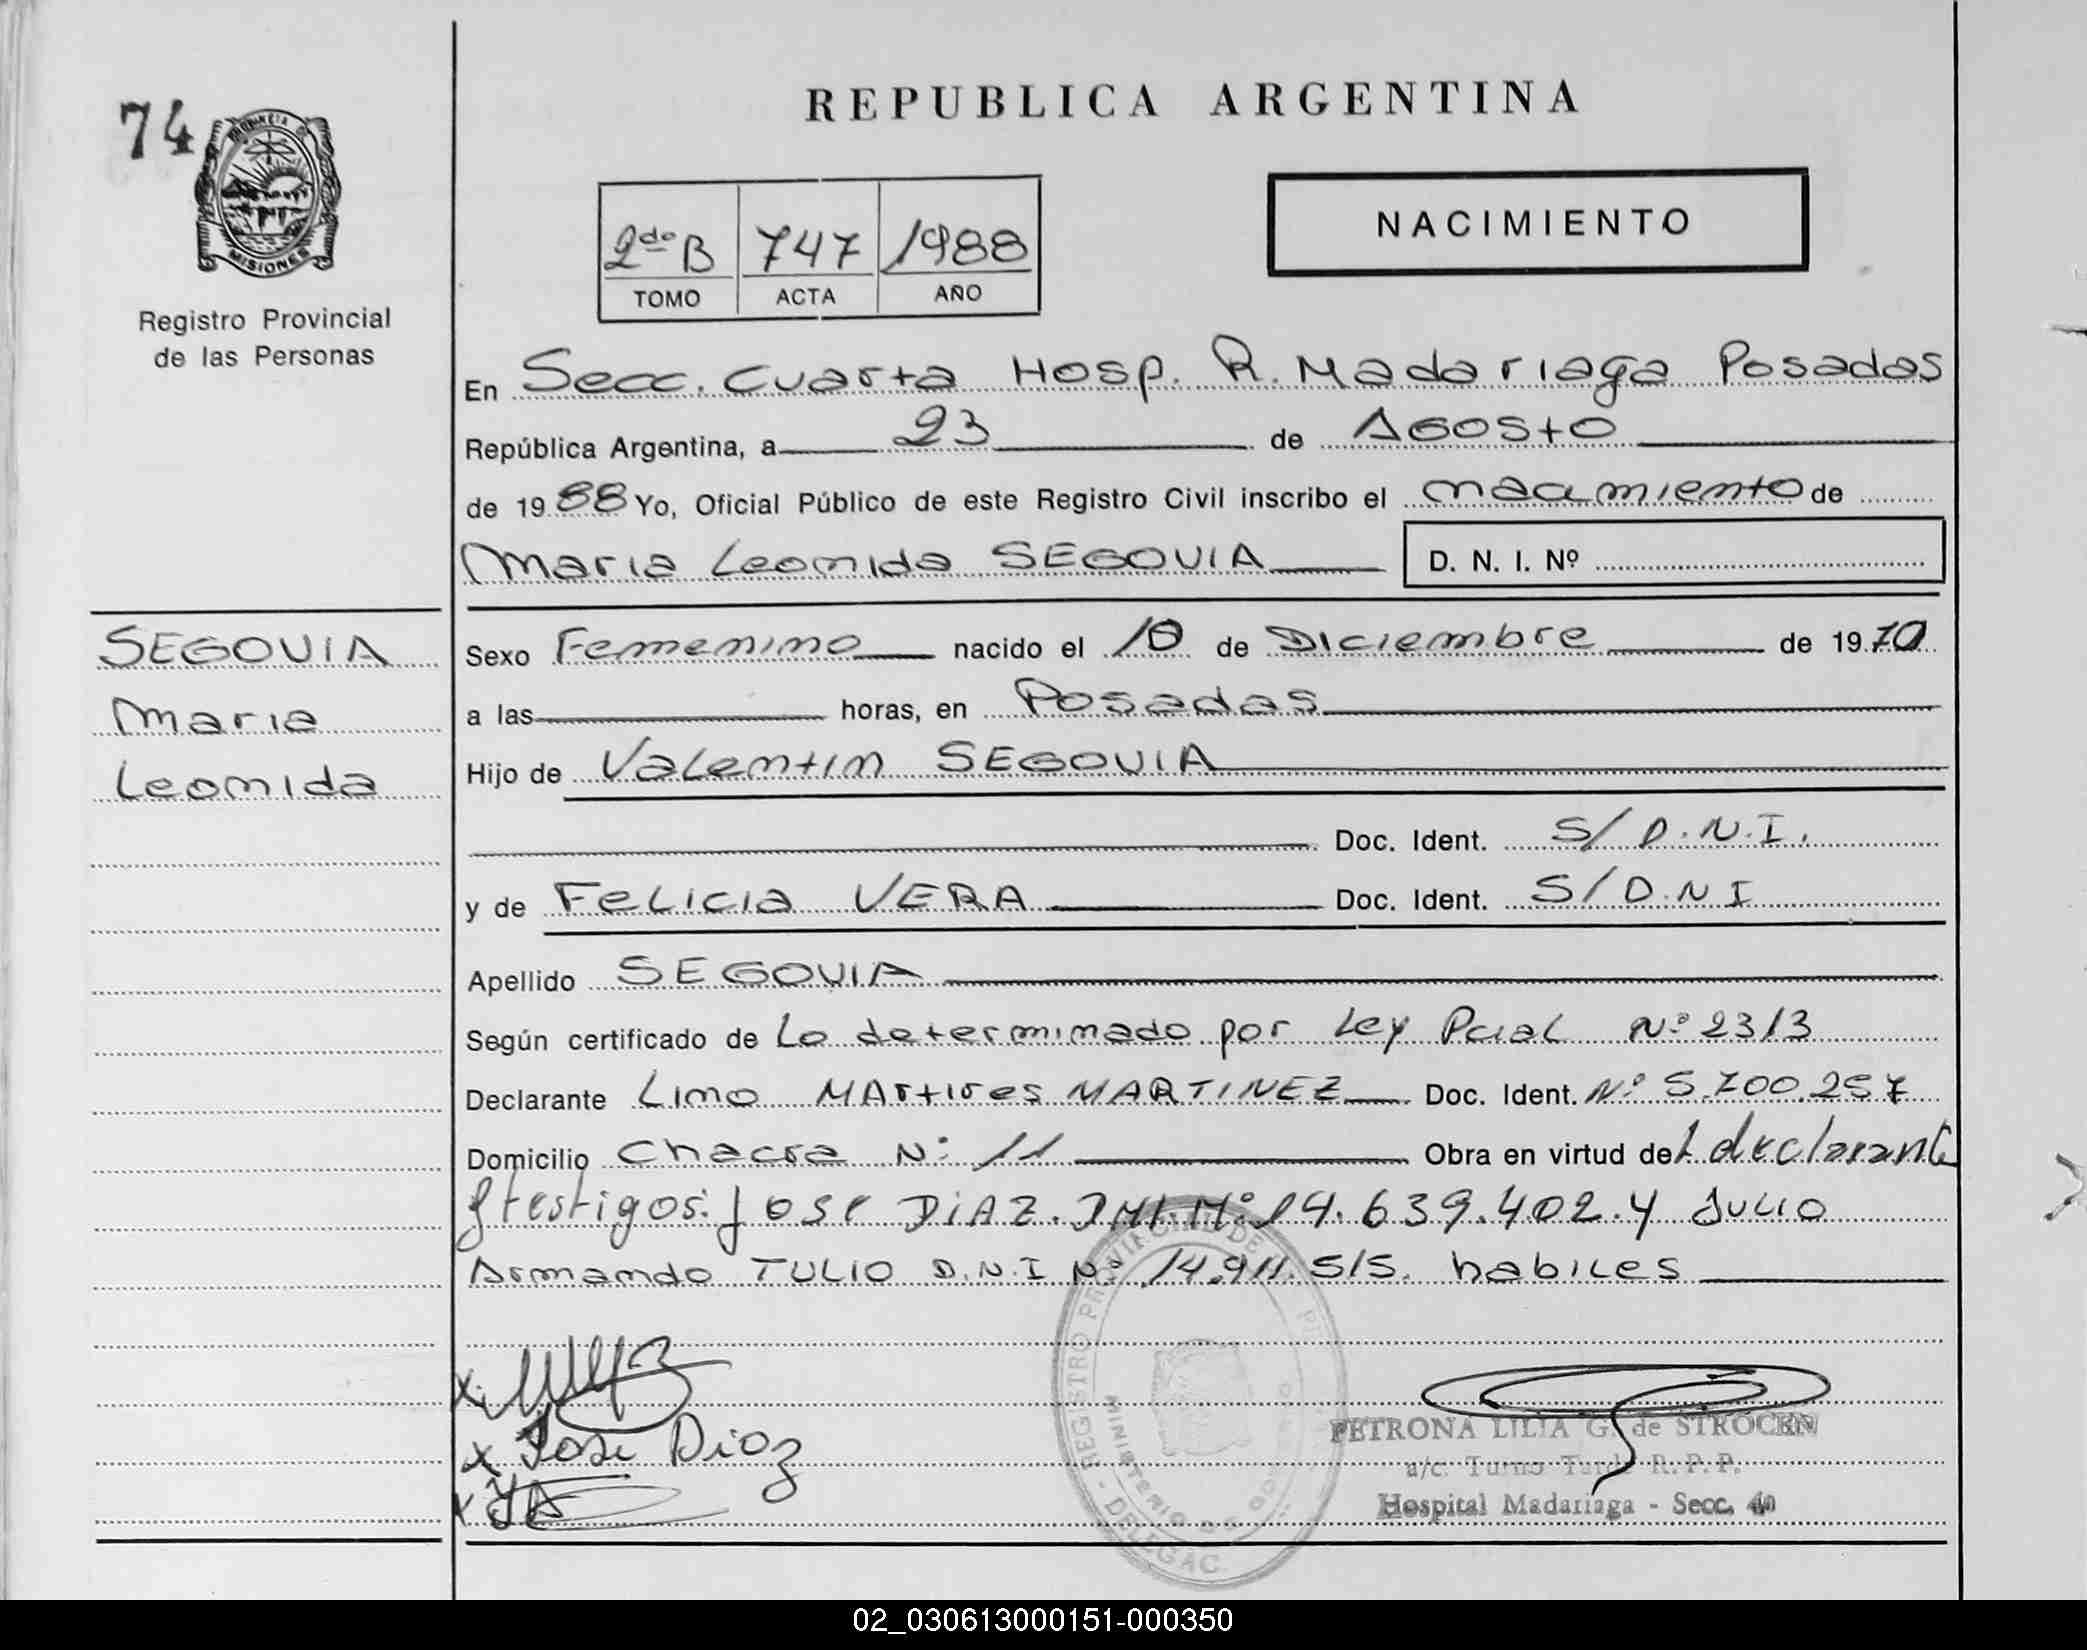 REPUBLICA ARGENTINA
74
PROVINCIA DE
MISIONES
Registro Provincial
de las Personas
2do B 747 1988
TOMO ACTA AÑO
NACIMIENTO
En Secc. Cuarta Hosp. R. Madariaga Posadas
República Argentina, a 23 de Agosto
de 1988 Yo, Oficial Público de este Registro Civil inscribo el nacimiento de
Maria Leonida SEGOVIA D. N. I. Nº
SEGOVIA
Maria
Leonida
Sexo Femenino nacido el 10 de Diciembre de 1970
a las horas, en Posadas
Hijo de Valentin SEGOVIA
Doc. Ident. S/D.N.I.
y de Felicia VERA Doc. Ident. S/D.N.I
Apellido SEGOVIA
Según certificado de Lo determinado por Ley Pcial Nº 2313
Declarante Lino Martires MARTINEZ Doc. Ident. Nº 5.700.257
Domicilio Chacra Nº 11 Obra en virtud del declarante
y testigos: Jose DiAZ. DNI. Nº 14.639.402. y Julio
Armando TULIO D.N.I Nº 14.911.515. habiles
x Jose Diaz
PETRONA LILIA G. de STROCEN
a/c. Turno Tarde R. P. P.
Hospital Madariaga - Secc. 4a
REGISTRO PROVINCIAL DE
MINISTERIO DE GOBIERNO
DELEGAC.
02_030613000151-000350